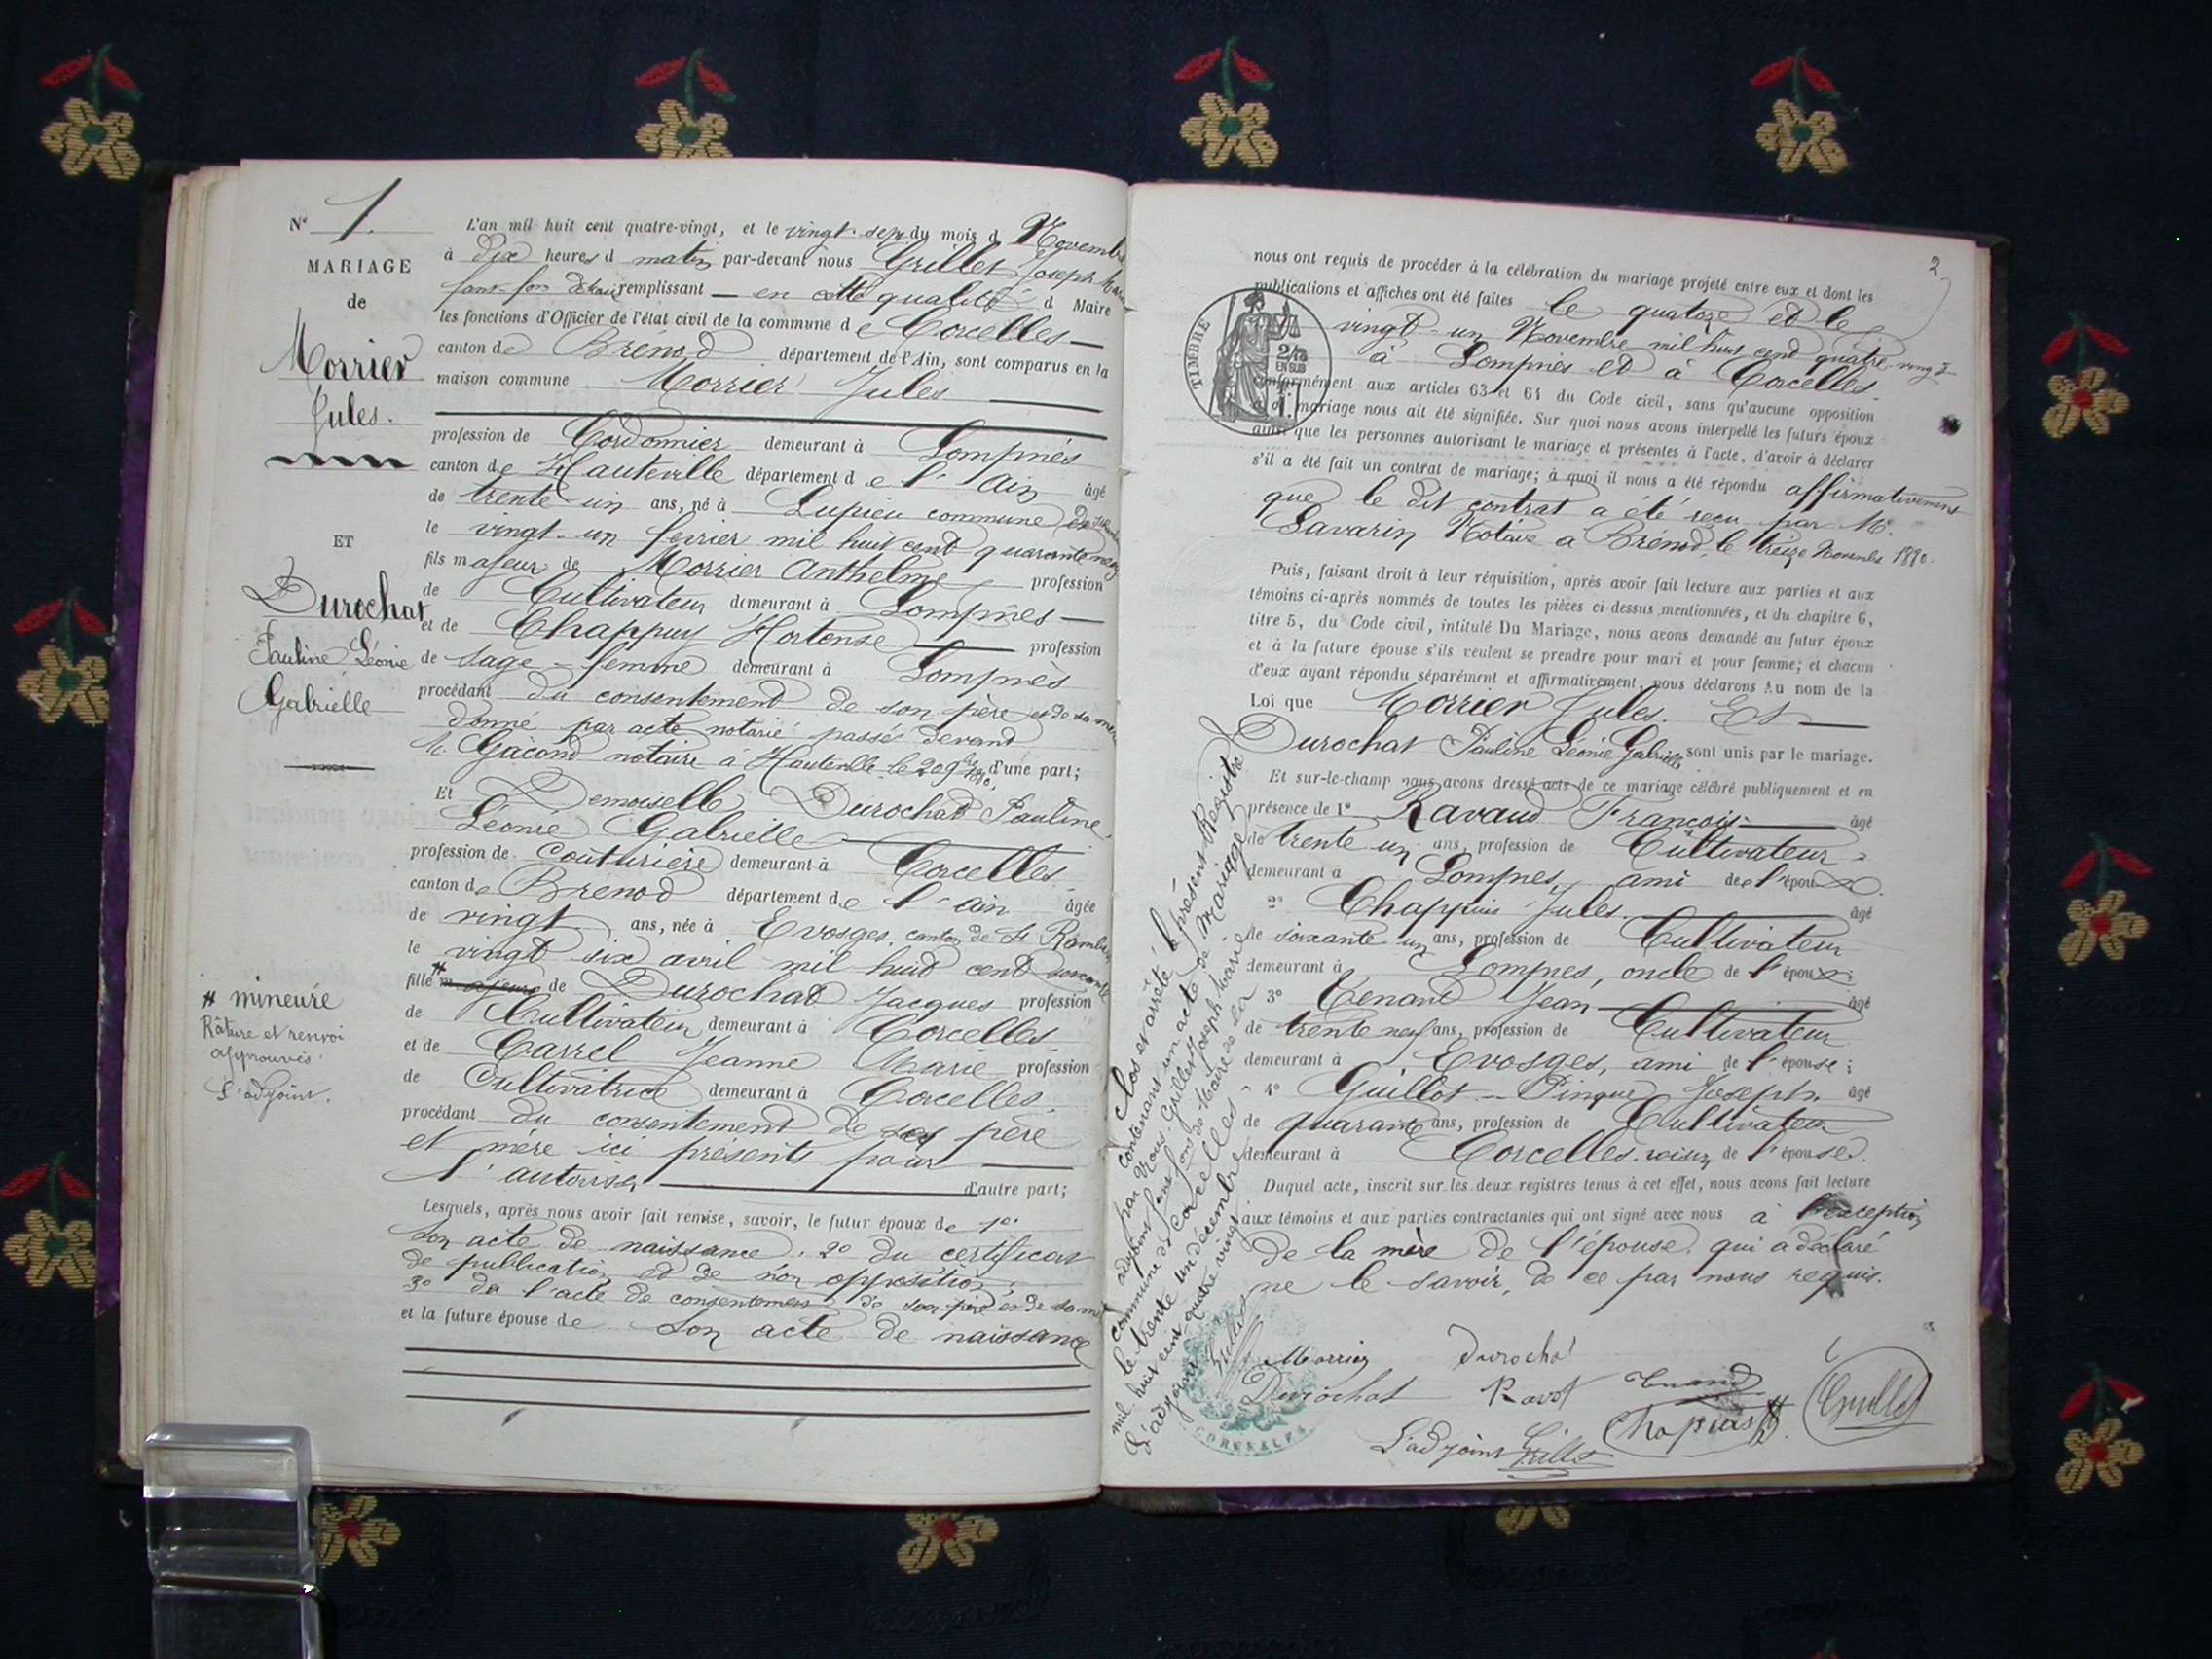 N° 1.
MARIAGE
de
Morrier
Jules.
ET
Durochat
Pauline Léonie
Gabrielle
# mineure
Râture et renvoi
approuvés
L'adjoint.
L'an mil huit cent quatre-vingt, et le vingt-sept du mois d Novembre
à dix heures d matin par-devant nous Grillet Joseph Marie
remplissant — en cette qualité d Maire
les fonctions d'Officier de l'état civil de la commune de Corcelles —
canton de Brénod département de l'Ain, sont comparus en la
maison commune Morrier Jules
profession de Cordonnier demeurant à Lompnès
canton de Hauteville département de l'Ain âgé
de trente un ans, né à Lupieu commune de
le vingt-un fevrier mil huit cent quarante neuf
fils majeur de Morrier Anthelme profession
de Cultivateur demeurant à Lompnès —
et de Chappuy Hortense profession
de Sage-femme demeurant à Lompnès
procédant du consentement de son père et de sa mère
donné par acte notarié passé devant
M. Gacond notaire à Hauteville le 20 9bre 1880, d'une part;
Et Demoiselle Durochat Pauline
Léonie Gabrielle
profession de Couturière demeurant à Corcelles
canton de Brénod département de l'Ain âgée
de vingt ans, née à Evosges, canton de St Rambert
le vingt six avril mil huit cent soixante
fille # majeure de Durochat Jacques profession
de Cultivateur demeurant à Corcelles
et de Carrel Jeanne Marie profession
de Cultivatrice demeurant à Corcelles
procédant du consentement de ses père
et mère ici présents pour
l'autoriser d'autre part;
Lesquels, après nous avoir fait remise, savoir, le futur époux de 1°
son acte de naissance. 2° du certificat
de publication et de non opposition;
3° de l'acte de consentement de son père et de sa mère
et la future épouse de son acte de naissance
2
nous ont requis de procéder à la célébration du mariage projeté entre eux et dont les
publications et affiches ont été faites le quatorze et le
vingt-un Novembre mil huit cent quatre-vingt
à Lompnès et à Corcelles
TIMBRE
2/10 EN SUS
conformément aux articles 63 et 64 du Code civil, sans qu'aucune opposition
au dt mariage nous ait été signifiée. Sur quoi nous avons interpellé les futurs époux
ainsi que les personnes autorisant le mariage et présentes à l'acte, d'avoir à déclarer
s'il a été fait un contrat de mariage; à quoi il nous a été répondu affirmativement
que le dit contrat a été reçu par Me.
Savarin Notaire à Brénod, le treize Novembre 1880.
Puis, faisant droit à leur réquisition, après avoir fait lecture aux parties et aux
témoins ci-après nommés de toutes les pièces ci-dessus mentionnées, et du chapitre 6,
titre 5, du Code civil, intitulé Du Mariage, nous avons demandé au futur époux
et à la future épouse s'ils veulent se prendre pour mari et pour femme; et chacun
d'eux ayant répondu séparément et affirmativement, nous déclarons Au nom de la
Loi que Morrier Jules. Et
Durochat Pauline Léonie Gabrielle sont unis par le mariage.
Et sur-le-champ nous avons dressé acte de ce mariage célébré publiquement et en
présence de 1° Ravaud François âgé
de trente un ans, profession de Cultivateur
demeurant à Lompnes, ami de l'époux.
2° Chappuis Jules. âgé
de soixante un ans, profession de Cultivateur
demeurant à Lompnes, oncle de l'époux.
3° Tenand Jean âgé
de trente neuf ans, profession de Cultivateur
demeurant à Evosges, ami de l'épouse;
4° Guillot-Pingue Joseph. âgé
de quarante ans, profession de Cultivateur
demeurant à Corcelles. voisin de l'épouse.
Duquel acte, inscrit sur les deux registres tenus à cet effet, nous avons fait lecture
aux témoins et aux parties contractantes qui ont signé avec nous à l'exception
de la mère de l'épouse. qui a déclaré
ne le savoir, de ce par nous requis.
Morrier Durochat
Durochat Ravot Tenand
Chapuis
L'adjoint Grillet
Clos et arrêté le présent Registre
contenant un acte de Mariage
par Nous Grillet Joseph Marie
adjoint fons fons de Maire de la
commune de Corcelles,
le trente un décembre
mil huit cent quatre vingt
L'adjoint Grillet
CORCELLES